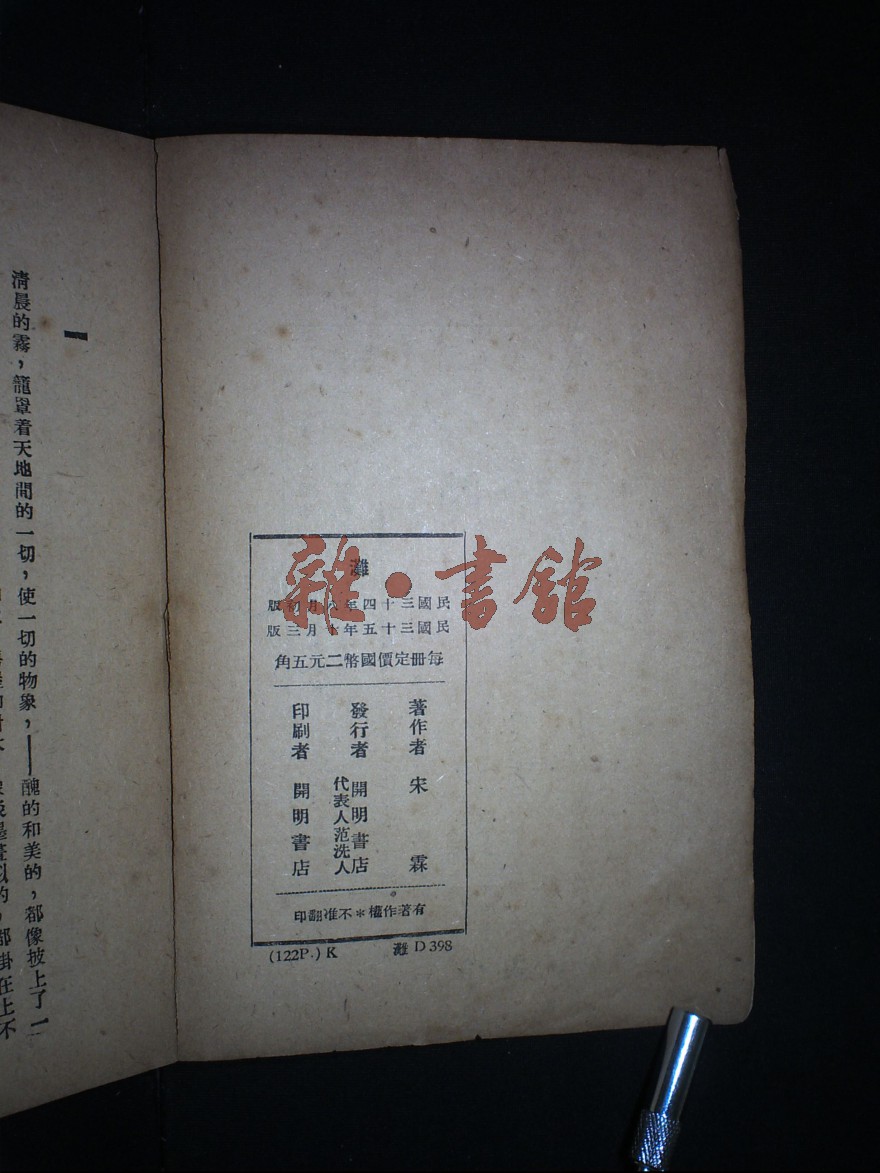 灘
民國三十四年八月初版
民國三十五年十月三版
每冊定價國幣二元五角
著作者 宋霖
發行者 開明書店
代表人范洗人
印刷者 開明書店
有著作權＊不准翻印
(122P.) K 灘 D 398
雜·書館
一
清晨的霧，籠罩着天地間的一切，使一切的物象，——醜的和美的，都像披上了一